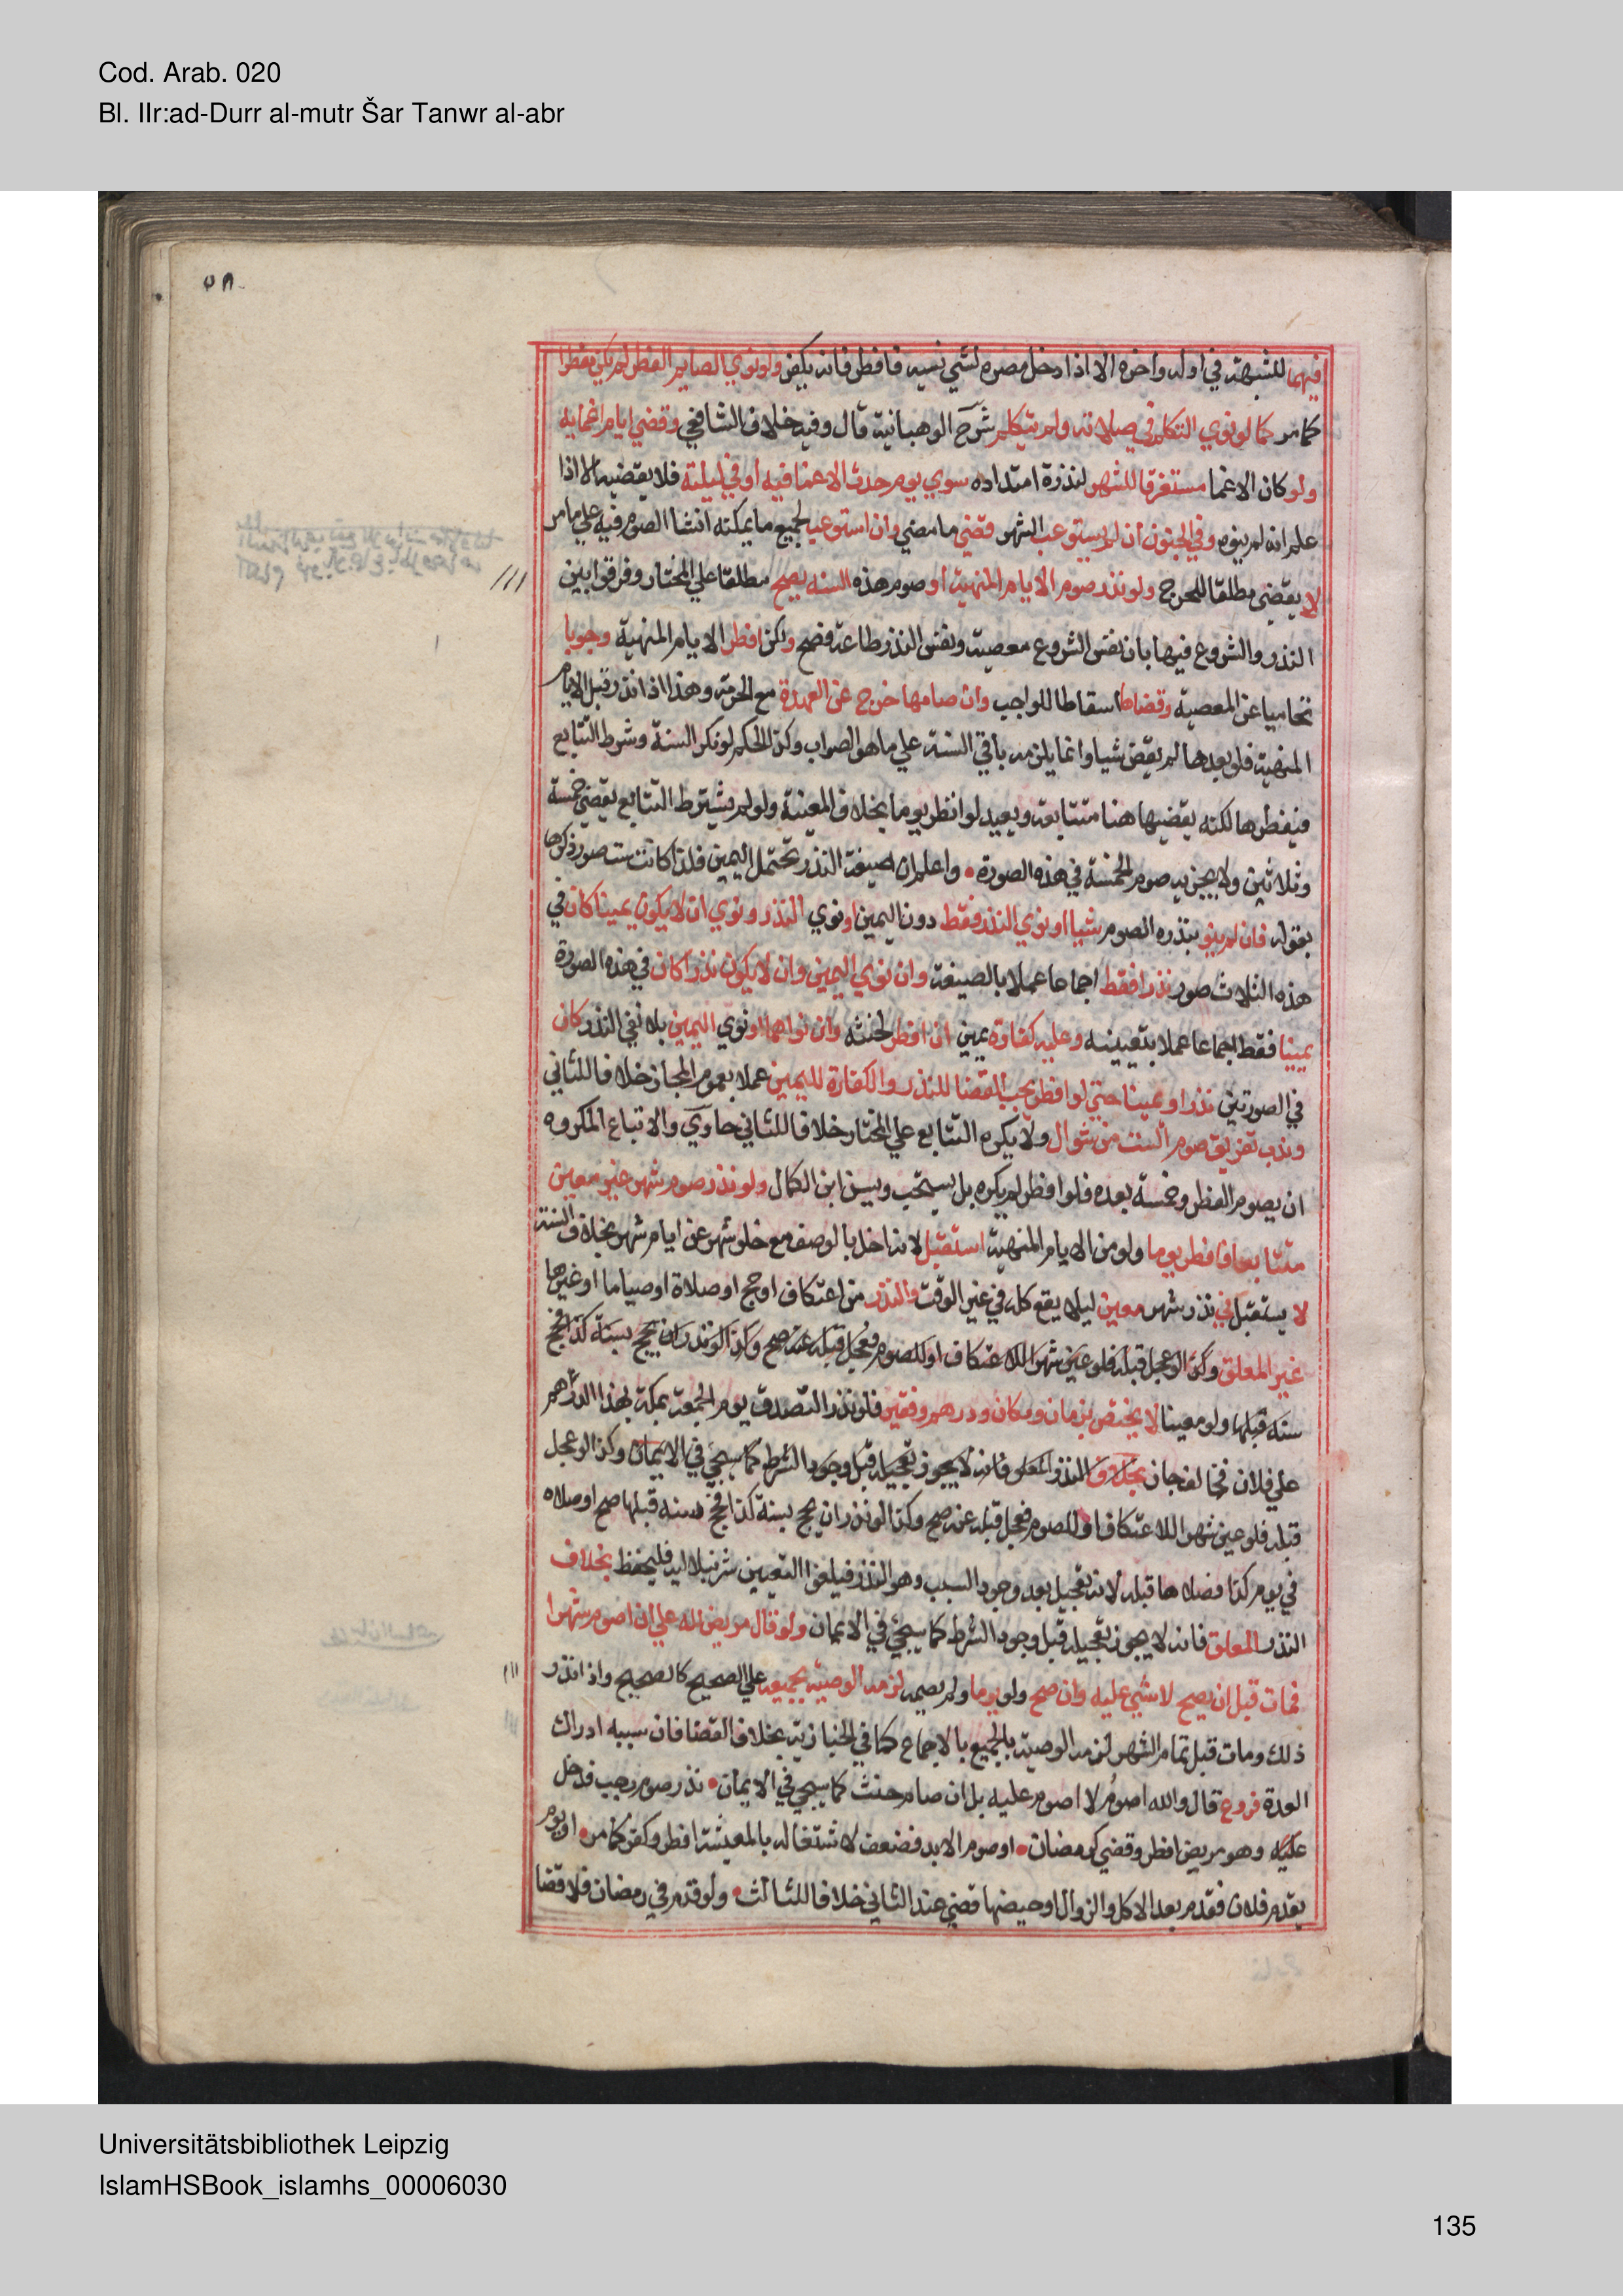 Cod. Arab. 020
Bl. IIr:ad-Durr al-mutr Šar Tanwr al-abr
٥٨
فيهما للشبهة في اوله واخره الا اذا دخل مصره لشي نسيه فافطر فانه يكفر ولو نوي الصايم الفطر لم يكن مفطرا
كما مر كما لو نوي التكلم في صلاته ولم يتكلم شرح الوهبانية قال وفيه خلاف الشافعي وقضي ايام اغمايه
ولو كان الاغما مستغرقا للشهر لندرة امتداده سوي يوم حدث الاغما فيه او في ليلته فلا يقضيه الا اذا
علم انه لم ينوه وفي الجنون ان لم يستوعب الشهر قضي ما مضي وان استوعب لجميع ما يمكنه انشا الصوم فيه علي ما مر
لا يقضي مطلقا للحرج ولو نذر صوم الايام المنهية او صوم هذه السنه يصح مطلقا علي المختار وفرقوا بين
النذر والشروع فيها بان نفس الشروع معصية ونفس النذر طاعة فصح ولكن افطر الايام المنهية وجوبا
تحاميا عن المعصية وقضاها اسقاطا للواجب وان صامها خرج عن العهدة مع الحرمة وهذا اذا نذر قبل الايام
المنهية فلو بعدها لم يقض شيا وانما يلزمه باقي السنة علي ما هو الصواب وكذا الحكم لو نكر السنة وشرط التتابع
فيفطرها لكنه يقضيها هنا متتابعة ويعيد لو افطر يوما بخلاف المعينة ولو لم يشترط التتابع يقضي خمسة
وثلاثين ولا يجزيه صوم الخمسة في هذه الصورة • واعلم ان صيغة النذر تحتمل اليمين فلذا كانت ست صور ذكرها
بقوله فان لم ينو بنذره الصوم شيا او نوي النذر فقط دون اليمين او نوي النذر ونوي ان لا يكون يمينا كان في
هذه الثلاث صور نذرا فقط اجماعا عملا بالصيغة وان نوي اليمين وان لا يكون نذرا كان في هذه الصورة
يمينا فقط اجماعا عملا بتعيينه وعليه كفارة يمين ان افطر لحنثه وان نواهما او نوي اليمين بلا نفي النذر كان
في الصورتين نذرا ويمينا حتي لو افطر يجب القضا للنذر والكفارة لليمين عملا بعموم المجاز خلافا للثاني
وندب تفريق صوم الست من شوال ولا يكره التتابع علي المختار خلافا للثاني حاوي والاتباع المكروه
ان يصوم الفطر وخمسة بعده فلو افطر لم يكره بل يستحب ويسن ابن الكمال ولو نذر صوم شهر غير معين
متتابعا فافطر يوما ولو من الايام المنهية استقبل لانه اخل بالوصف مع خلو شهر عن ايام شهر بخلاف السنة
لا يستقبل في نذر شهر معين ليلا يقع كله في غير الوقت والنذر من اعتكاف او حج او صلاة او صياما او غيرها
غير المعلق وكذا لو عجل قبله فلو عين شهرا للاعتكاف او للصوم فعجل قبله عنه صح وكذا لو نذر ان يحج بسنة كذا فحج
سنه قبلها ولو معينا لا يختص بزمان ومكان ودرهم وفقير فلو نذر التصدق يوم الجمعة بمكة بهذا الدرهم
علي فلان فخالف جاز بخلاف النذر المعلق فانه لا يجوز تعجيله قبل وجود الشرط كما سيجي في الايمان وكذا لو عجل
قبله فلو عين شهرا للاعتكاف او للصوم فعجل قبله عنه صح وكذا لو نذر ان يحج بسنة كذا فحج سنه قبلها صح او صلاه
في يوم كذا فصلاها قبله لانه تعجيل بعد وجود السبب وهو النذر فيلغوا التعيين شرنبلاليه فليحفظ بخلاف
النذر المعلق فانه لا يجوز تعجيله قبل وجود الشرط كما سيجي في الايمان ولو قال مريض لله علي ان اصوم شهرا
فمات قبل ان يصح لا شي عليه وان صح ولو يوما ولم يصمه لزمه الوصية بجميعه علي الصحيح كالصحيح واذا نذر
ذلك ومات قبل تمام الشهر لزمه الوصية بالجميع بالاجماع كما في الخبازية بخلاف القضا فان سببه ادراك
العدة فروع قال والله اصوم لا اصوم عليه بل ان صام حنث كما سيجي في الايمان • نذر صوم رجب فدخل
عليه وهو مريض افطر وقضي كرمضان • او صوم الابد فضعف لاشتغاله بالمعيشة افطر وكفر كما مر • او يوم
يقدم فلان فقدم بعد الاكل والزوال او حيضها قضي عند الثاني خلافا للثالث • ولو قدم في رمضان فلا قضا
Universitätsbibliothek Leipzig
IslamHSBook_islamhs_00006030
135